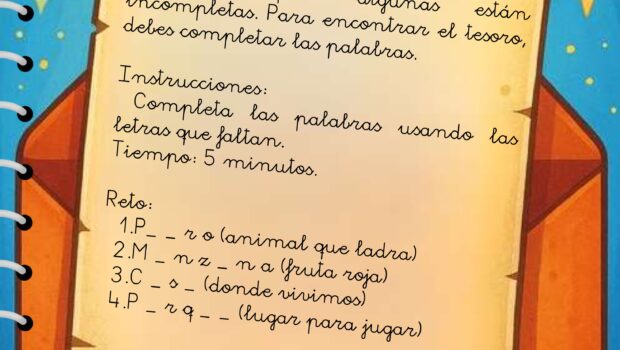 algunas están
incompletas. Para encontrar el tesoro,
debes completar las palabras.
Instrucciones:
Completa las palabras usando las
letras que faltan.
Tiempo: 5 minutos.
Reto:
1.P_ _ r o (animal que ladra)
2.M _ n z _ n a (fruta roja)
3.C _ s _ (donde vivimos)
4.P _ r q _ _ (lugar para jugar)